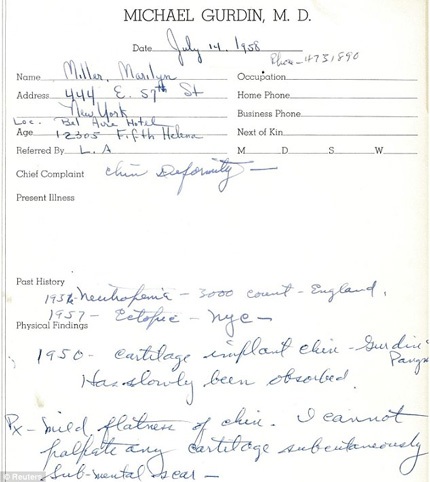 MICHAEL GURDIN, M. D.
Date July 14, 1958
Phon - 4731890
Name Miller, Marilyn Occupation
Address 444 E. 57th St Home Phone
New York Business Phone
Loc. Bel Aire Hotel
Age 12305 Fifth Helena Next of Kin
Referred By L. A. M D S W
Chief Complaint Chin Deformity -
Present Illness
Past History
1956 Neutropenia - 3000 count - England.
1957 - Ectopic - NYC -
Physical Findings
1950 - cartilage implant chin - Gurdin
Pangm
Has slowly been absorbed.
Px - mild flatness of chin. I cannot
palpate any cartilage subcutaneously
Sub-mental scar -
© Reuters